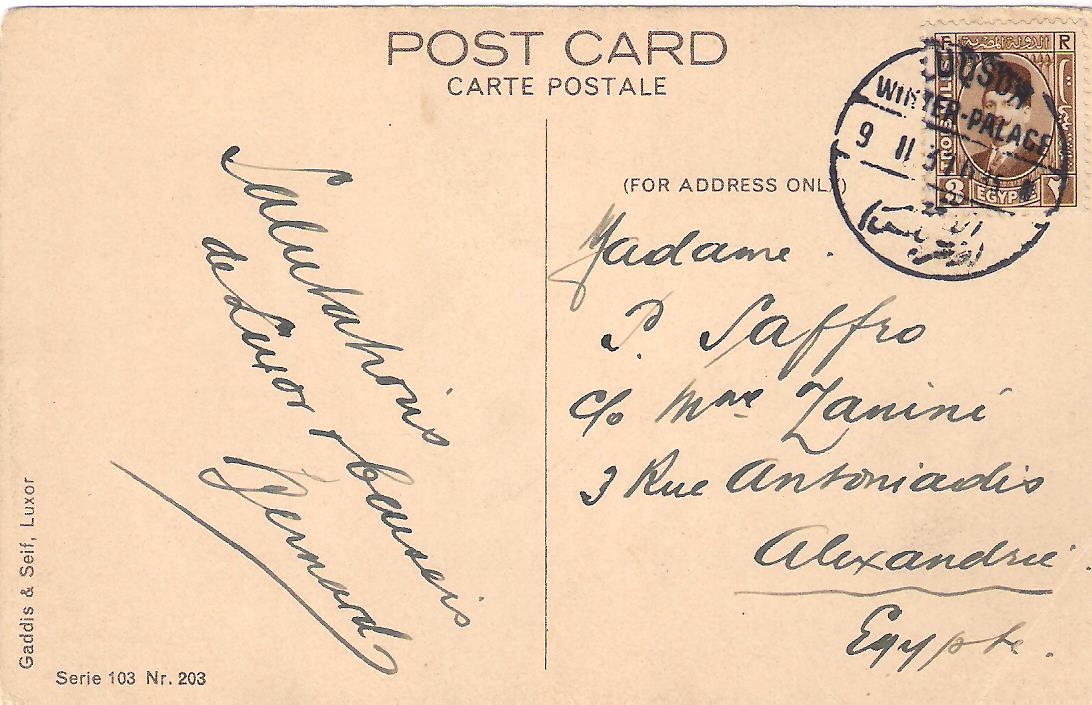 POST CARD
CARTE POSTALE
(FOR ADDRESS ONLY)
LUQSOR
WINTER-PALACE
9 II 37
الأقصر
F R
الدولة المصرية
POSTES
EGYPTE
Salutations
de Luxor & baisers
Bernard
Madame.
P. Saffro
c/o Mme Zanini
3 Rue Antoniadis
Alexandrie
Egypte.
Gaddis & Seif, Luxor
Serie 103 Nr. 203